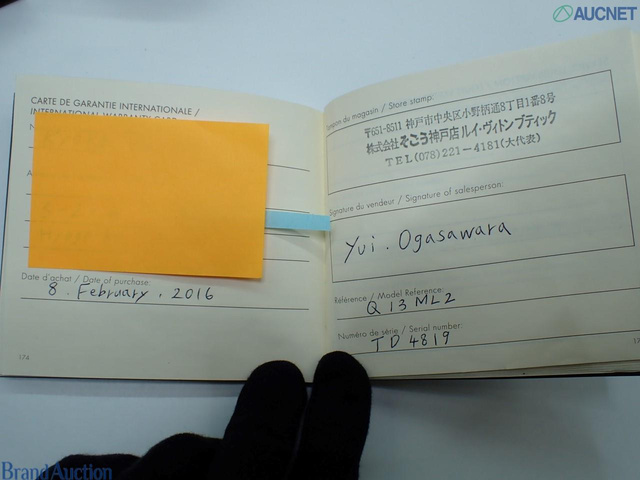 AUCNET
CARTE DE GARANTIE INTERNATIONALE /
INTERNATIONAL WARRANTY CARD
Date d'achat / Date of purchase:
8. February, 2016
174
Tampon du magasin / Store stamp:
〒651-8511 神戸市中央区小野柄通8丁目1番8号
株式会社そごう神戸店ルイ・ヴィトンブティック
TEL(078)221-4181(大代表)
Signature du vendeur / Signature of salesperson:
Yui. Ogasawara
Référence / Model Reference:
Q 13 ML2
Numéro de série / Serial number:
TD 4819
Brand Auction